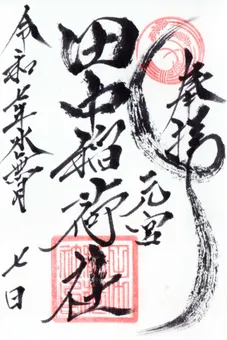 奉拝
元宮
田中稲荷社
令和年水無月
七日